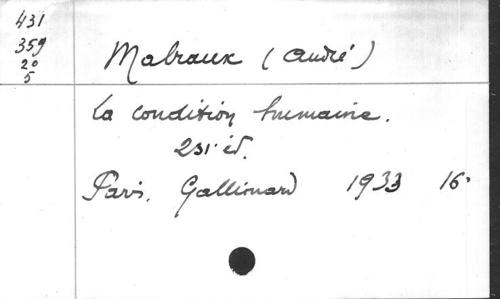 431
359
20
5
Malraux (André)
La condition humaine.
231e éd.
Paris. Gallimard 1933 16°